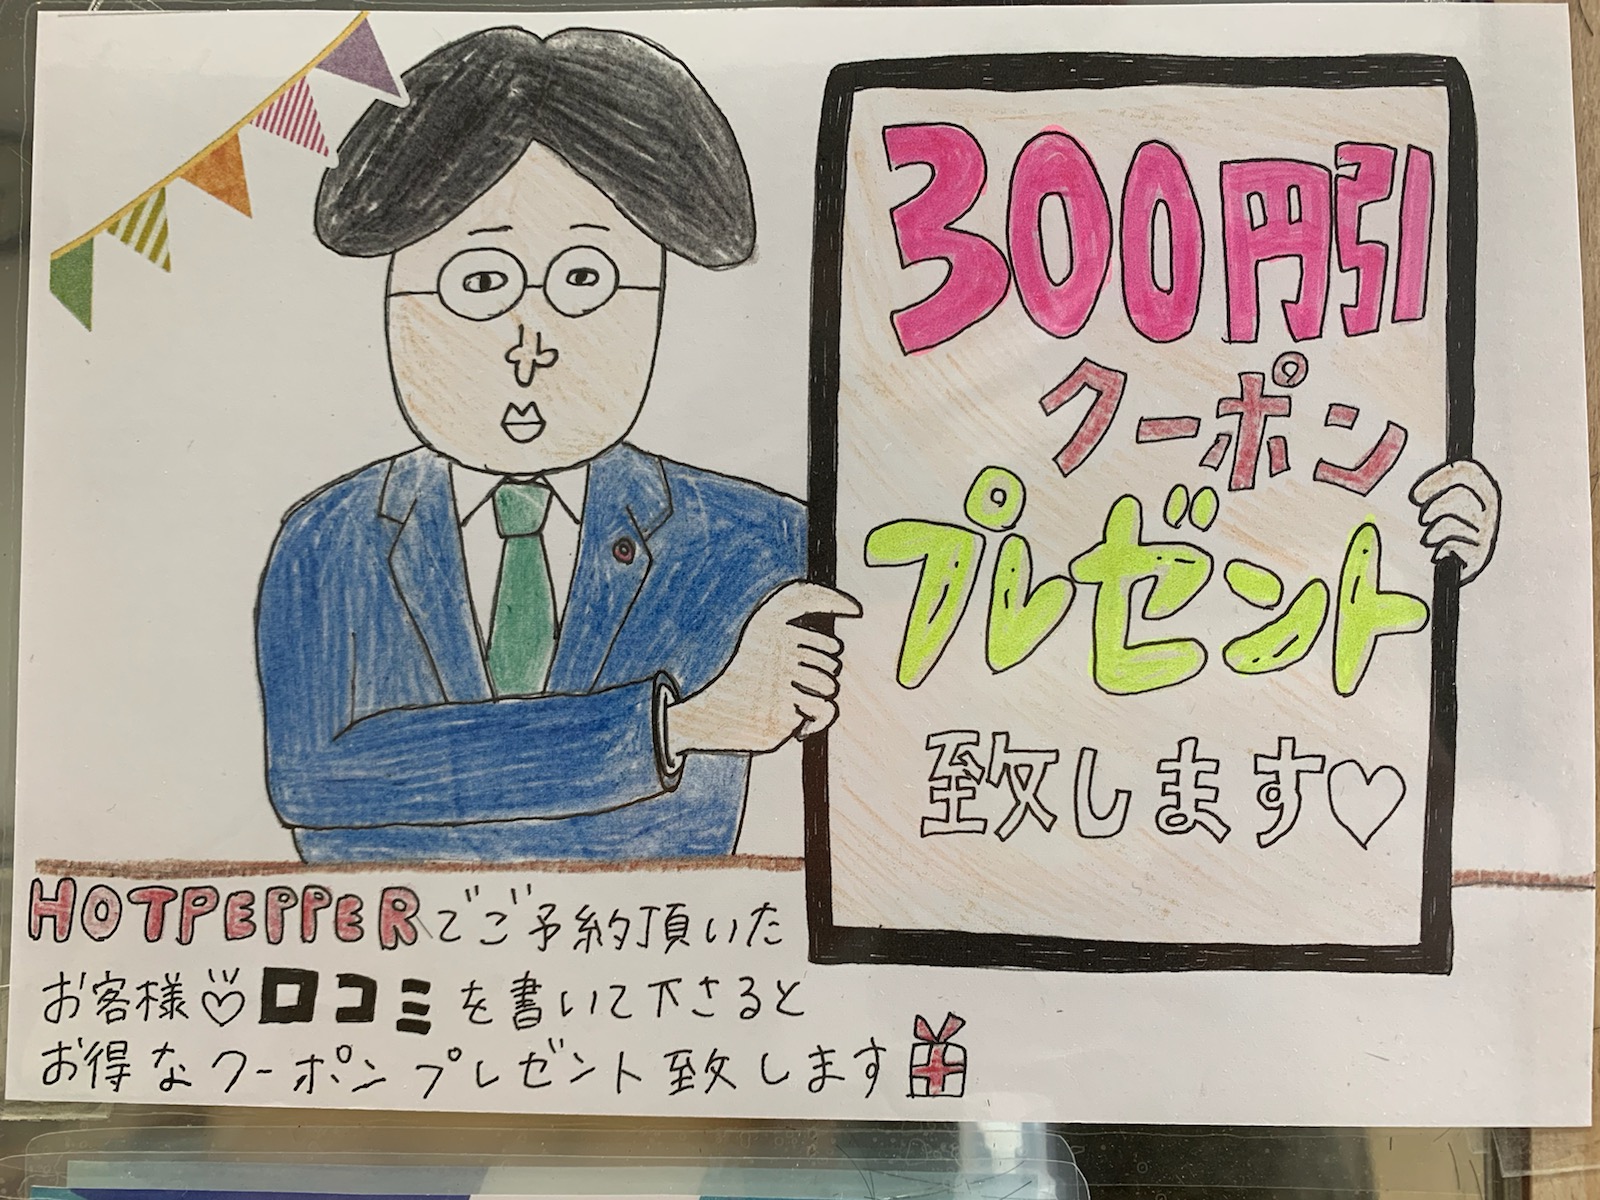 300円引
クーポン
プレゼント
致します♡
HOTPEPPERでご予約頂いた
お客様♡口コミを書いて下さると
お得なクーポンプレゼント致します